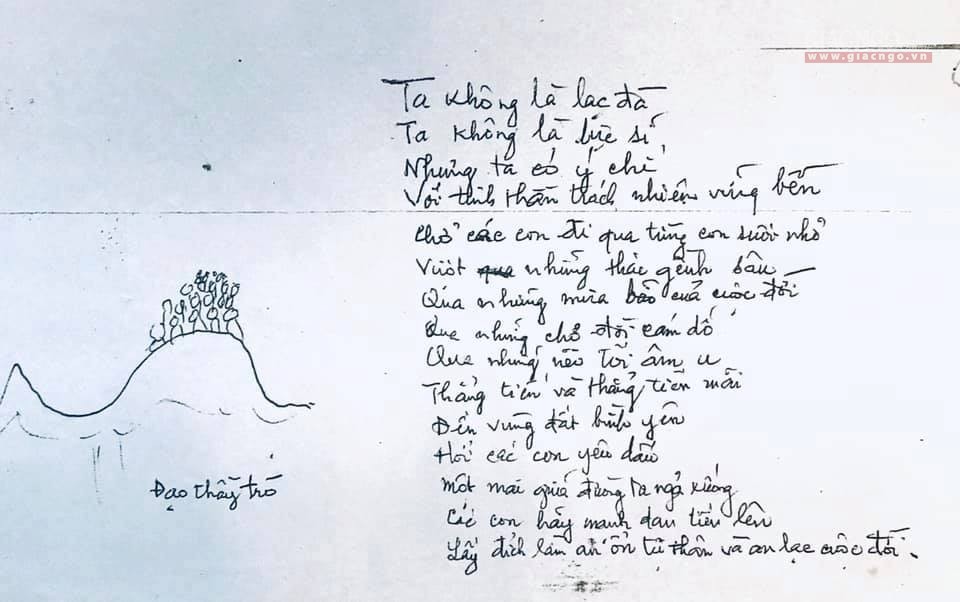 www.giacngo.vn
Ta không là lạc đà
Ta không là lực sĩ
Nhưng ta có ý chí
Với tinh thần trách nhiệm vững bền
Chở các con đi qua từng con suối nhỏ
Vượt qua những thác ghềnh sâu
Qua những mưa bão của cuộc đời
Qua những chợ đời cám dỗ
Qua những nẻo tối âm u
Thẳng tiến và thẳng tiến mãi
Đến vùng đất bình yên
Hỡi các con yêu dấu
Một mai giữa đường ta ngã xuống
Các con hãy mạnh dạn tiến lên
Lấy đích làm an ổn tự thân và an lạc cuộc đời.
Đạo thầy trò